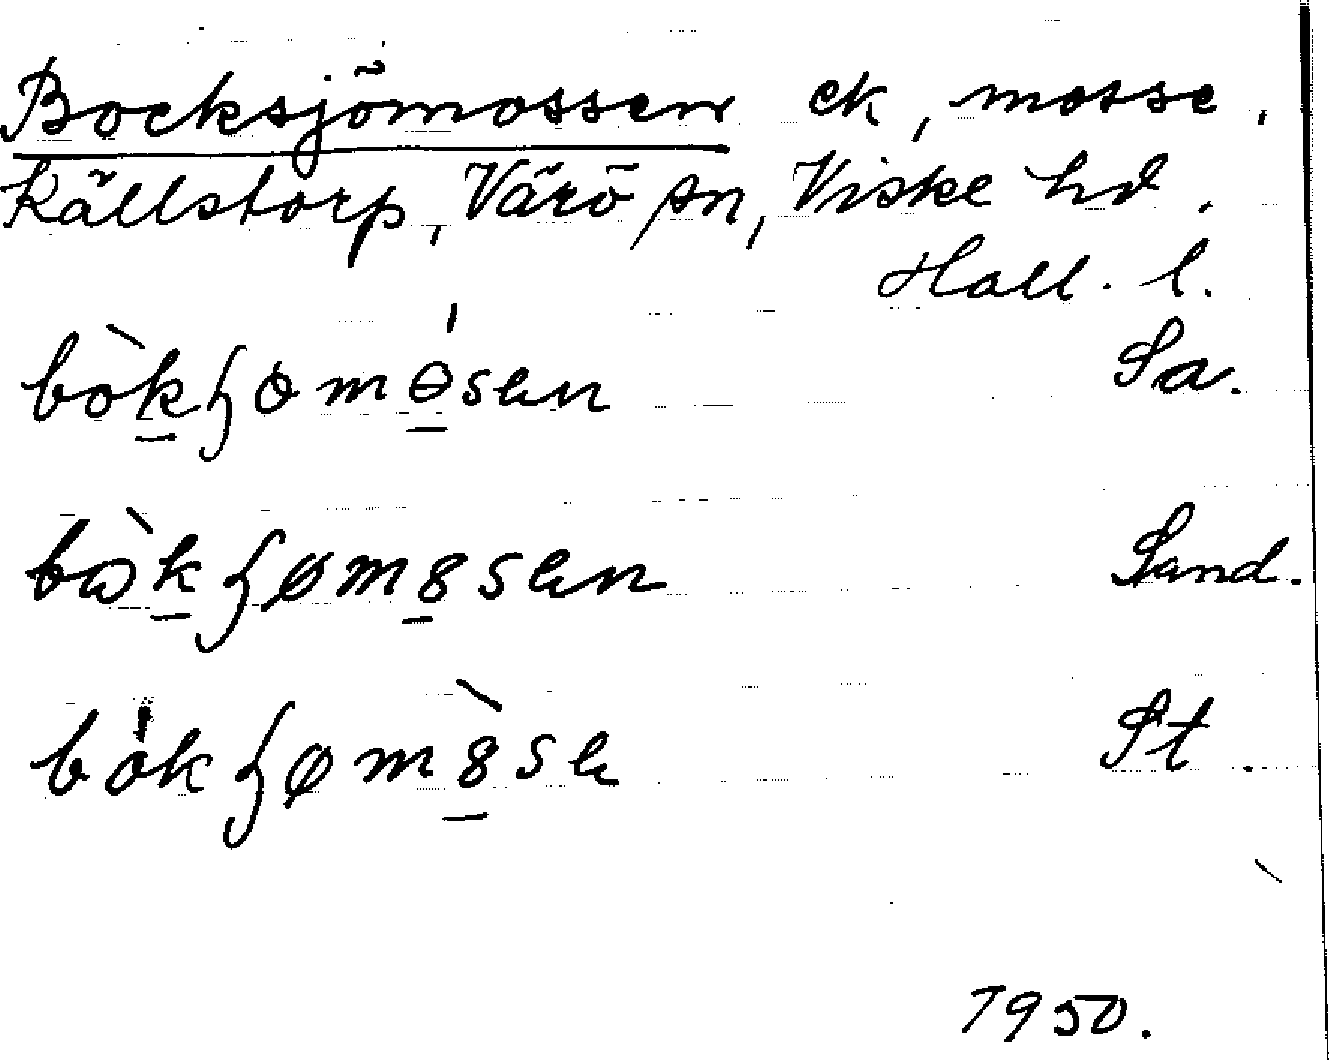 Bocksjömossen ek, mosse.
Källstorp, Värö sn, Viske hd.
Hall. l.
bòkɧɵmɵ́sen Sa.
bòkɧømɞsen Sand.
bókɧømɞ̀se St.
1950.